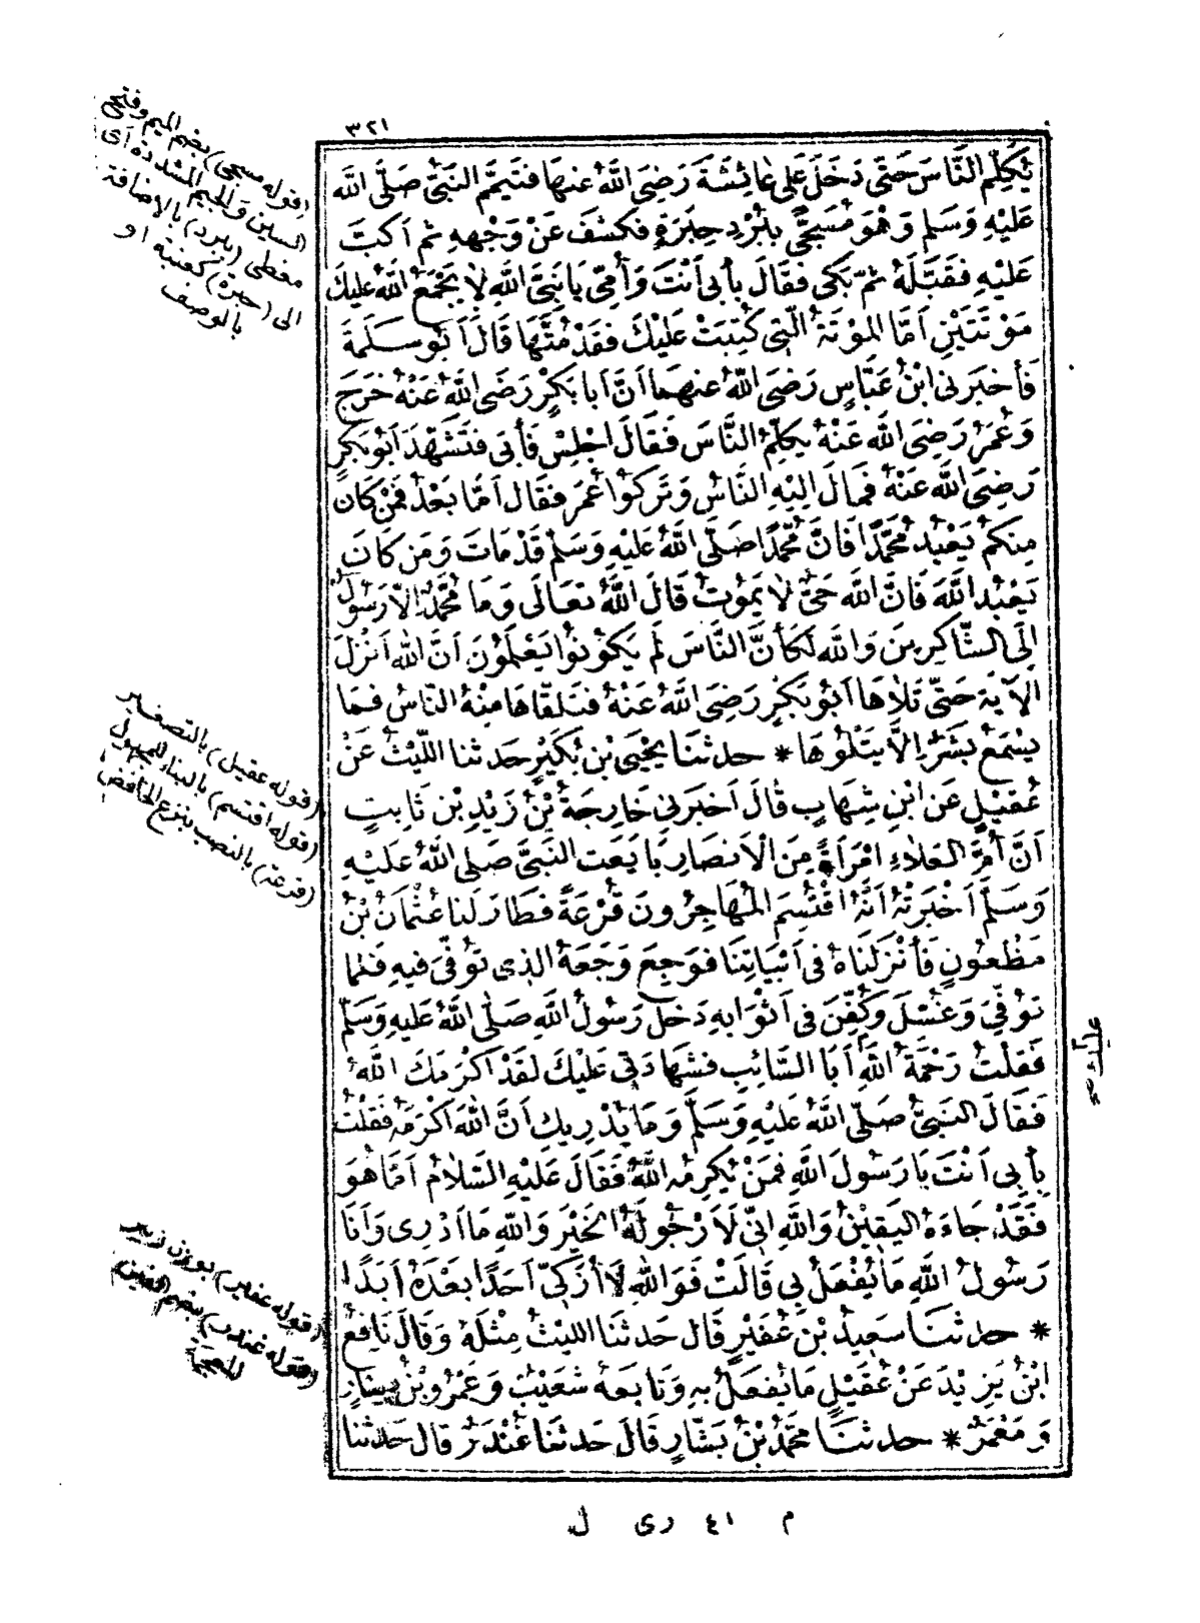 ٣٢١
يُكَلِّمِ النَّاسَ حَتَّى دَخَلَ عَلَى عَائِشَةَ رَضِىَ اللّٰهُ عنها فَتَيَمَّمَ النَّبِىَّ صَلَّى اللّٰه
عَلَيْهِ وَسَلَّم وَهْوَ مُسَجًّى بِبُرْدِ حِبَرَةٍ فكَشَفَ عَنْ وَجْهِهِ ثم اَكَبَّ
عَلَيْهِ فَقَبَّلَهُ ثمّ بَكَى فقَالَ بِأَبى أَنْتَ وَأُمِّى يَا نَبِىَّ اللّٰهِ لاَ يَجْمَعُ اللّٰهُ عليكَ
مَوْتَتَيْنِ اَمَّا الْمَوْتَةُ الَّتِى كُتِبَتْ عَلَيْكَ فقَدْ مُتَّهَا قَالَ أَبُو سَلَمَةَ
فَأَخبرَنى ابْنُ عَبَّاسٍ رَضِىَ اللّٰهُ عنهما اَنَّ اَبا بَكْرٍ رَضِىَ اللّٰهُ عَنْهُ خَرَجَ
وَعُمَرُ رَضِىَ اللّٰه عَنْهُ يُكَلِّمُ النَّاسَ فَقَالَ اجْلِسْ فَأَبى فَتَشَهَّدَ اَبُو بَكرٍ
رَضِىَ اللّٰه عَنْهُ فَمَالَ اِلَيْهِ النَّاسُ وَتَرَكُوا عُمَرَ فقَال اَمَّا بَعْدُ فَمَنْ كَانَ
مِنكُمْ يَعْبُدُ مُحَمَّدًا فَاِنَّ مُحَمَّدًا صَلَّى اللّٰهُ عَلَيْهِ وَسَلَّم قَدْ مَاتَ وَمَن كَانَ
يَعْبُدُ اللّٰهَ فَاِنَّ اللّٰه حَىٌّ لاَ يَمُوْتُ قَالَ اللّٰهُ تعَالَى وَمَا مُحَمَّدٌ اِلاَّ رَسُولٌ
اِلَى الشَّاكِرِينَ وَاللّٰه لَكَأَنَّ النَّاسَ لَم يَكُونُوا يَعْلَمُونَ اَنَّ اللّٰه اَنْزَلَ
الْآيَةَ حَتَّى تَلاَهَا اَبُو بَكْرٍ رَضِىَ اللّٰهُ عَنْهُ فَتَلَقَّاهَا مِنْهُ النَّاسُ فَمَا
يُسْمَعُ بَشَرٌ اِلاَّ يَتْلُوهَا * حدثنَا يَحْيَى بْن بُكَيْرٍ حَدثنا اللَّيْثُ عَنْ
عُقَيْلٍ عَن ابْنِ شِهَابٍ قَالَ اَخبَرَنى خَارِجَةُ بْنُ زَيْدِ بْن ثَابِتٍ
اَنَّ اُمَّ العَلاَءِ امْرَأَةً مِنَ الْاَنصَارِ بَايَعَت النَّبِىَّ صَلى اللّٰهُ عَلَيْهِ
وَسَلَّم اَخْبَرَتْهُ اَنَّهُ اقْتُسِمَ الْمُهَاجِرُونَ قُرْعَةً فطَارَ لَنا عُثْمَانُ بْنُ
مَظْعُونٍ فَأَنْزَلنَاهُ فى اَبْيَاتِنَا فَوَجِعَ وَجَعَهُ الذى تُوُفِّىَ فيهِ فَلمَّا
تُوُفِّىَ وَغُسِّلَ وَكُفِّنَ فى اَثْوَابِهِ دَخَلَ رَسُولُ اللّٰهِ صَلَّى اللّٰهُ عَليهِ وَسَلَّم
فَقُلْتُ رَحْمَةُ اللّٰهِ اَبَا السَّائِبِ فشَهَادَتِى عَلَيْكَ لَقَدْ اَكْرَمَكَ اللّٰهُ
فَقَالَ النَّبِىُّ صَلَّى اللّٰهُ عَلَيْهِ وَسَلَّم وَمَا يُدْرِيكِ اَنَّ اللّٰهَ اَكْرَمَهُ فَقُلْتُ
بِأَبِى اَنْتَ يَا رَسُولَ اللّٰهِ فَمَنْ يُكْرِمُهُ اللّٰهُ فَقَالَ عَلَيْهِ السَّلاَمُ اَمَّا هُوَ
فَقَدْ جَاءَهُ الْيَقِيْنُ وَاللّٰهِ اِنِّى لَاَرْجُو لَهُ الْخَيْرَ وَاللّٰهِ مَا اَدْرِى وَاَنَا
رَسُولُ اللّٰهِ مَا يُفْعَلُ بى قَالَتْ فَوَاللّٰهِ لاَ اُزَكِّى اَحَدًا بَعْدَهُ اَبَدًا
* حدثنَا سَعِيدُ بْنُ عُفَيْرٍ قَال حَدثنَا اللَّيْثُ مِثْلَهُ وَقَالَ نَافِعُ
ابْنُ يَزِيْدَ عَنْ عُقَيْلٍ مَا يُفْعَلُ بِهِ وَتَابَعَهُ شُعَيْبٌ وَعَمْرُو بْنُ دِينَارٍ
وَمَعْمَرٌ * حدثنَا مُحَمَّدُ بْنُ بَشَّارٍ قَالَ حَدثنَا غُنْدَرٌ قال حَدثنا
(قوله مسجى) بضم الميم وفتح
السين والجيم المشددة أى
مغطى (ببرد) بالاضافة
الى (حبرة) كعنبة او
بالوصف
(قوله عقيل) بالتصغير
(قوله اقتسم) بالبناء للمجهول
(قرعة) بالنصب بنزع الخافض
(قوله عفير) بوزن زبير
(قوله غندر) بضم الغين
المعجمة
م ٤١ رى ل